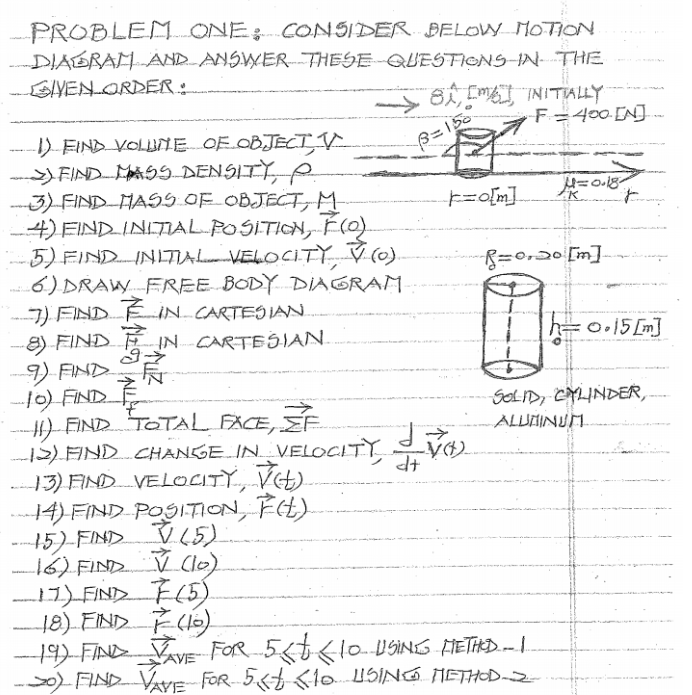 PROBLEM ONE: CONSIDER BELOW MOTION
DIAGRAM AND ANSWER THESE QUESTIONS IN THE
GIVEN ORDER:
→ 8î, [m/s], INITIALLY
β=15°
F = 400 [N]
r=0[m]
μK=0.18
r
1) FIND VOLUME OF OBJECT, V
2) FIND MASS DENSITY, ρ
3) FIND MASS OF OBJECT, M
4) FIND INITIAL POSITION, r⃗(0)
5) FIND INITIAL VELOCITY, V⃗(0)
6) DRAW FREE BODY DIAGRAM
7) FIND F⃗ IN CARTESIAN
8) FIND F⃗g IN CARTESIAN
9) FIND F⃗N
10) FIND F⃗f
11) FIND TOTAL FORCE, ΣF⃗
12) FIND CHANGE IN VELOCITY, d/dt V⃗(t)
13) FIND VELOCITY, V⃗(t)
14) FIND POSITION, r⃗(t)
15) FIND V⃗(5)
16) FIND V⃗(10)
17) FIND r⃗(5)
18) FIND r⃗(10)
19) FIND V⃗AVE FOR 5≤t≤10 USING METHOD-1
20) FIND V⃗AVE FOR 5≤t≤10 USING METHOD-2
R₀=0.20 [m]
h₀=0.15[m]
SOLID, CYLINDER,
ALUMINUM